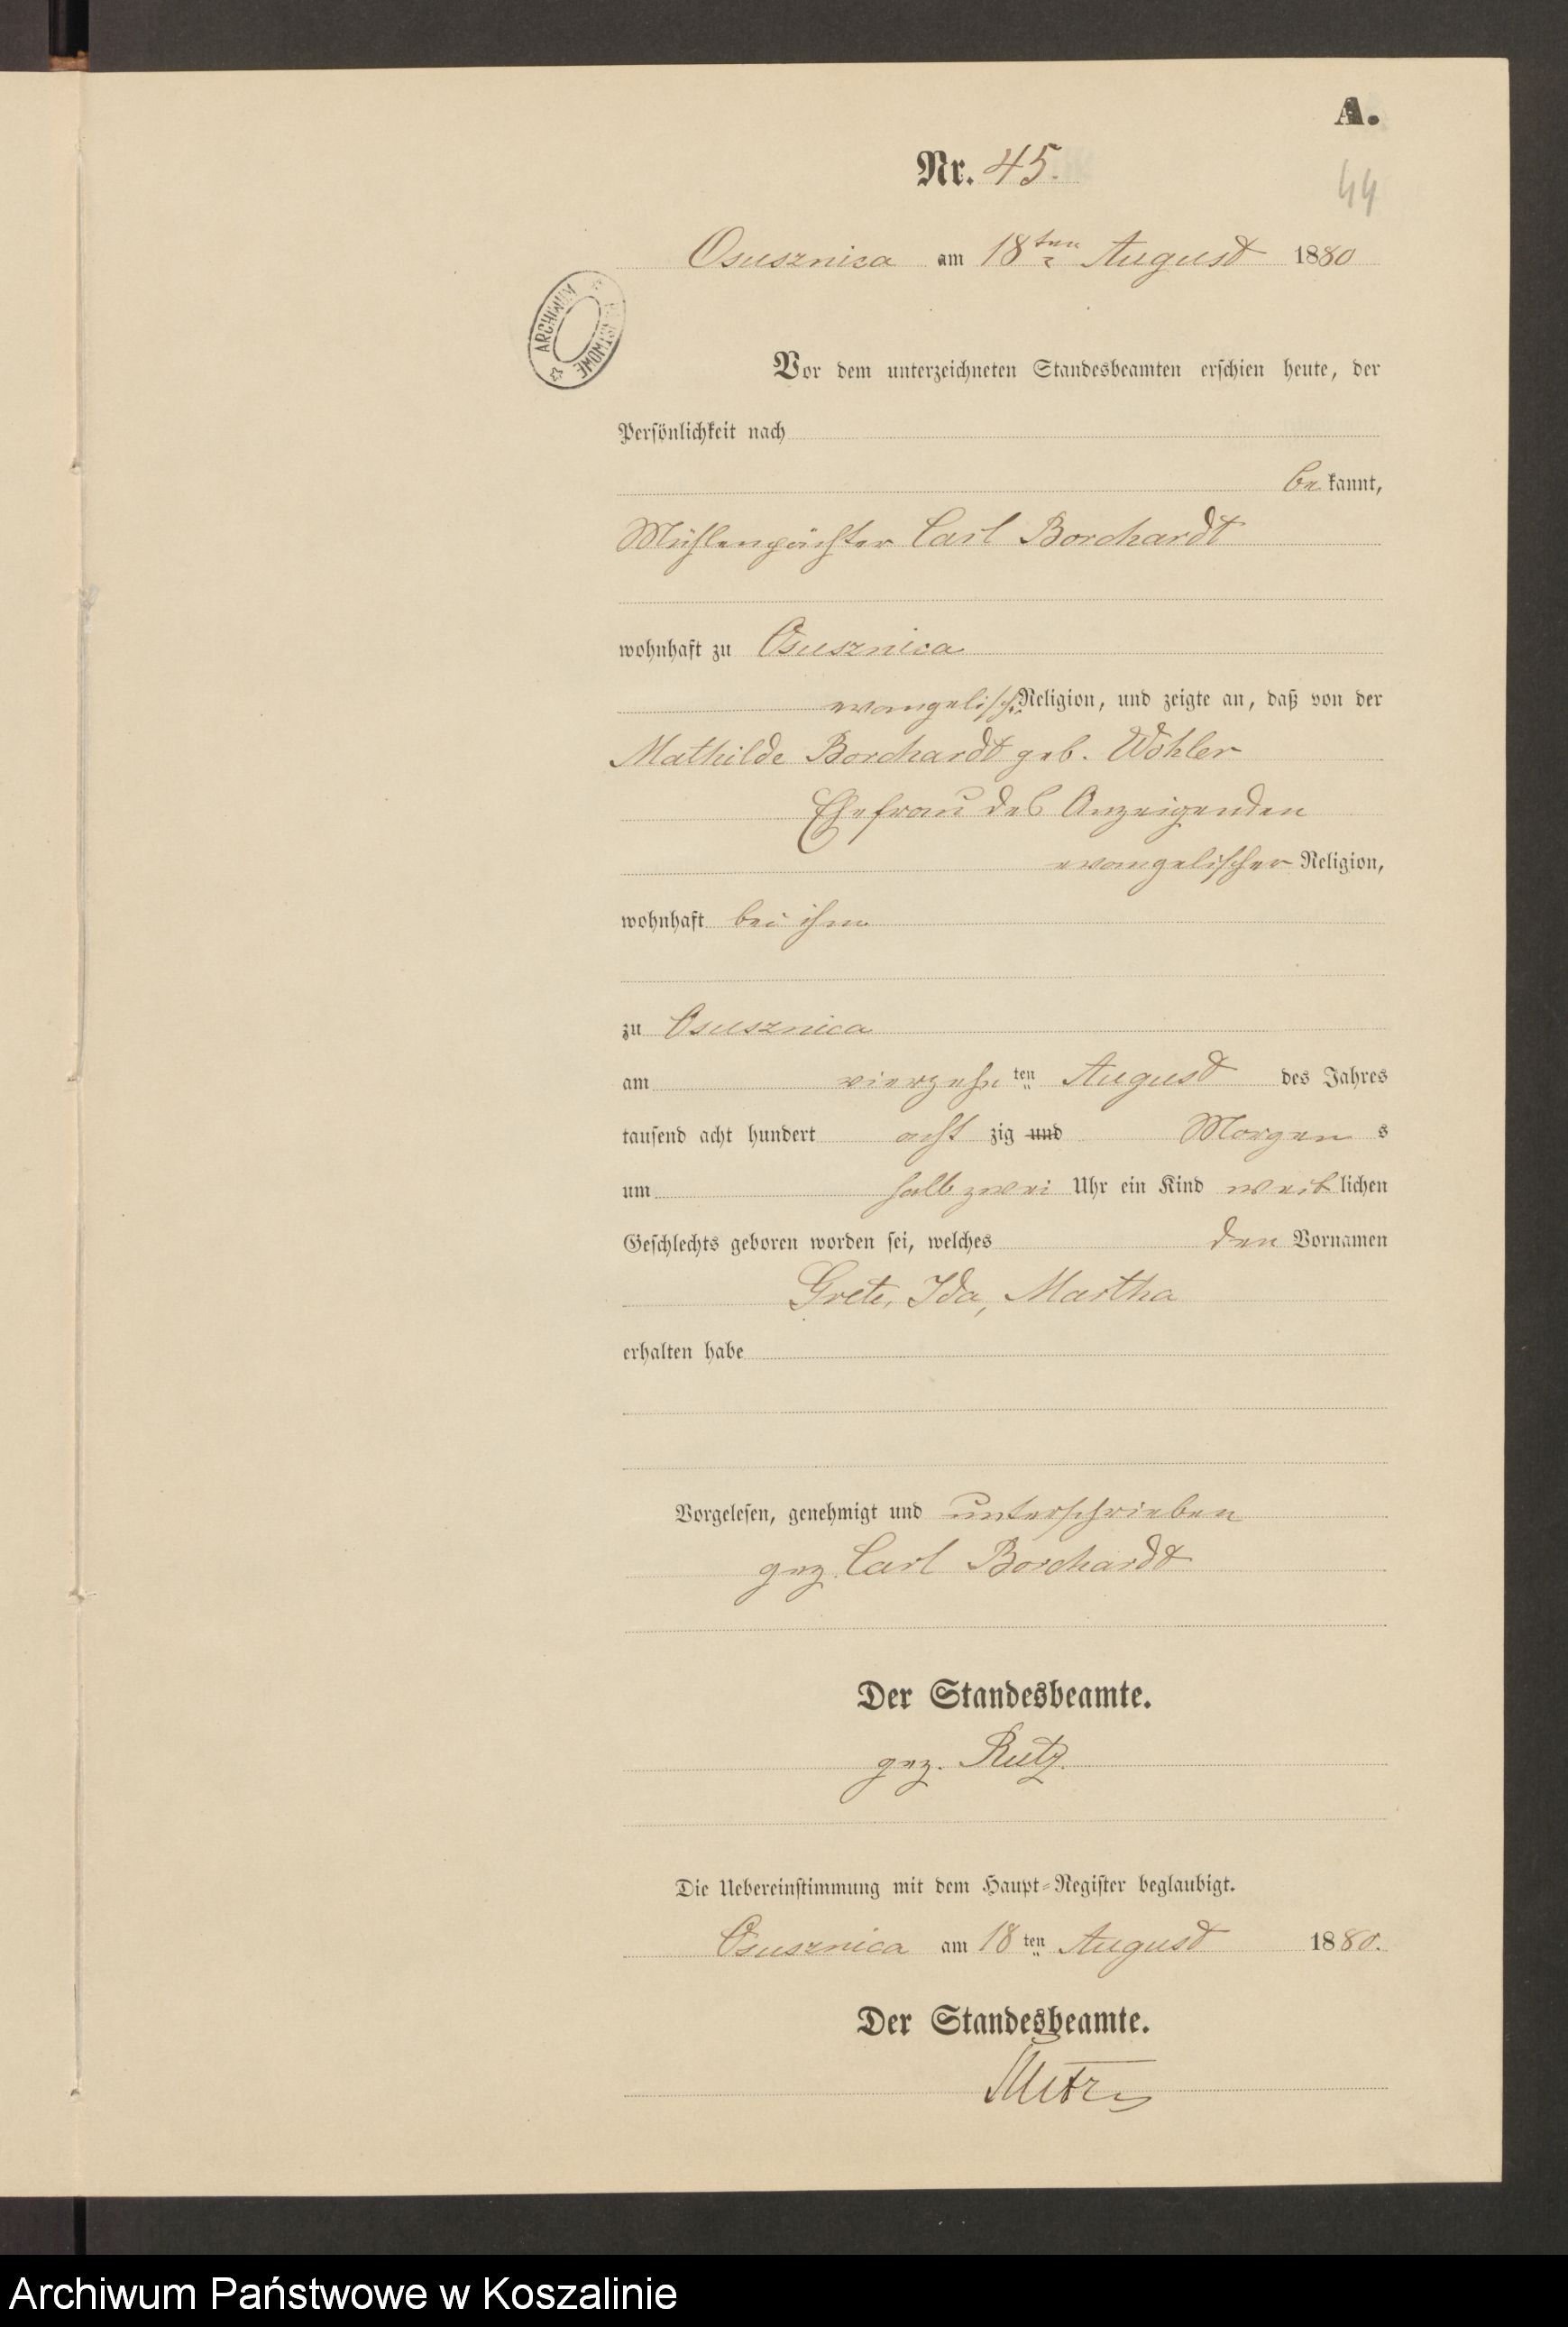 A.
Nr. 45.
44
Osusznica am 18ten August 1880
ARCHIWUM
Vor dem unterzeichneten Standesbeamten erschien heute, der
Persönlichkeit nach
be kannt,
Mühlenpächter Carl Borchardt
wohnhaft zu Osusznica
evangelischer Religion, und zeigte an, daß von der
Mathilde Borchardt geb. Wohler
Ehefrau des Anzeigenden
evangelischer Religion,
wohnhaft bei ihm
zu Osusznica
am vierzehn ten August des Jahres
tausend acht hundert acht zig und Morgen s
um halb zwei Uhr ein Kind weib lichen
Geschlechts geboren worden sei, welches den Vornamen
Grete, Ida, Martha
erhalten habe
Vorgelesen, genehmigt und unterschrieben
gez. Carl Borchardt
Der Standesbeamte.
gez. Rutz.
Die Uebereinstimmung mit dem Haupt-Register beglaubigt.
Osusznica am 18 ten August 1880.
Der Standesbeamte.
Archiwum Państwowe w Koszalinie